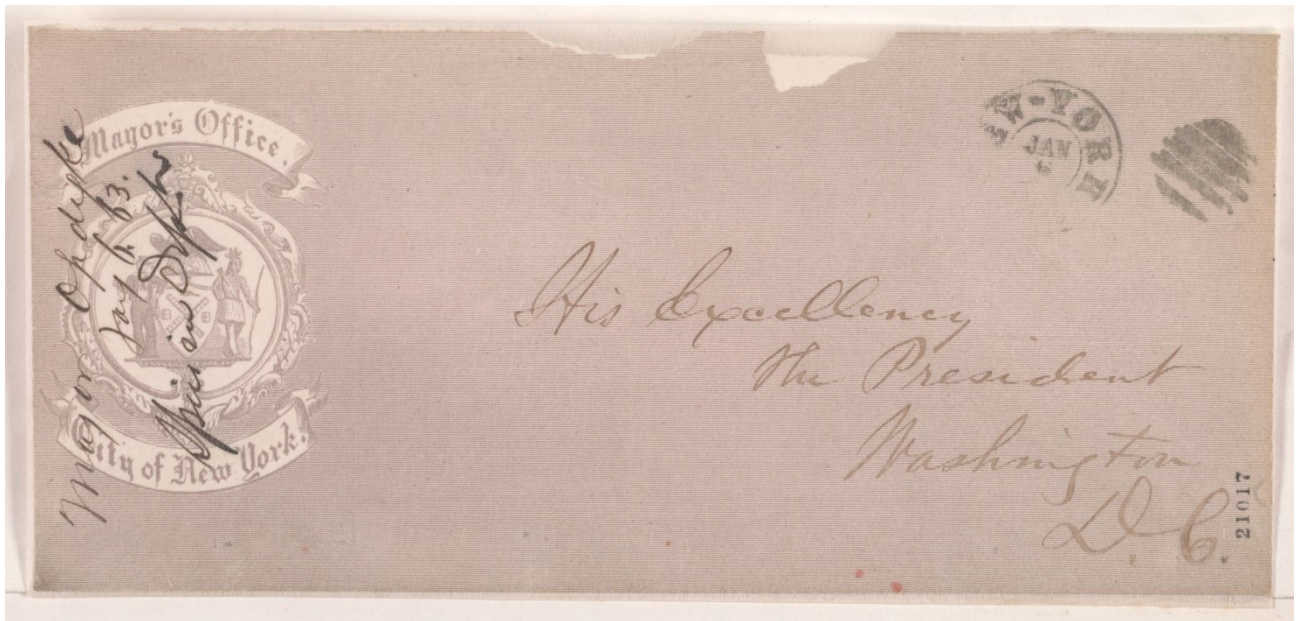 Mayor's Office.
City of New York.
Mayor Opdyke
Jany 6. 63.
NEW-YORK
JAN
6
His Excellency
The President
Washington
D. C.
21017